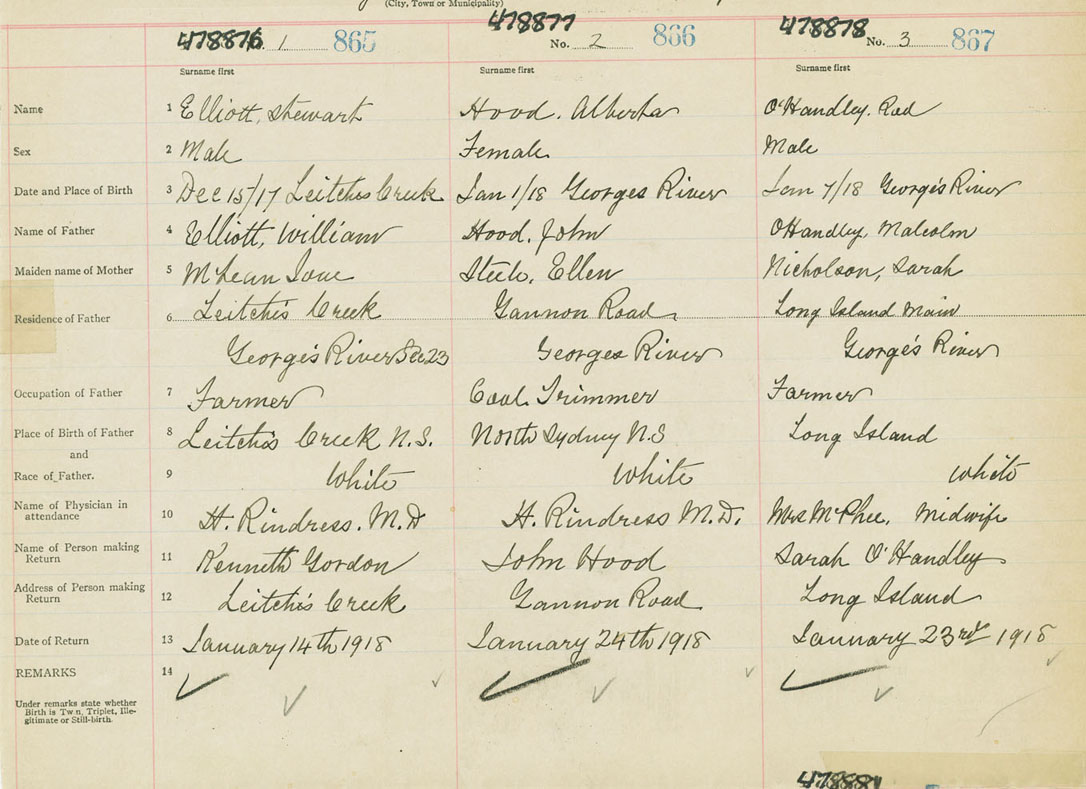 (City, Town or Municipality)
478876 1 865
478877 No. 2 866
478878 No. 3 867
Surname first Surname first Surname first
Name 1 Elliott, Stewart Hood. Alberta O'Handley. Rod
Sex 2 Male Female Male
Date and Place of Birth 3 Dec 15/17 Leitches Creek Jan 1/18 Georges River Jan 7/18 George's River
Name of Father 4 Elliott, William Hood. John O'Handley, Malcolm
Maiden name of Mother 5 McLean Ellen Nicholson, Sarah
Residence of Father 6 Leitch's Creek Gannon Road, Long Island Main
George's River Sec 23 Georges River George's River
Occupation of Father 7 Farmer Coal Trimmer Farmer
Place of Birth of Father 8 Leitch's Creek N.S. North Sydney N.S Long Island
and
Race of Father. 9 White White White
Name of Physician in
attendance 10 H. Rindress. M.D H. Rindress M.D. Mrs McPhee, Midwife
Name of Person making
Return 11 Kenneth Gordon John Hood Sarah O'Handley
Address of Person making
Return 12 Leitch's Creek Gannon Road Long Island
Date of Return 13 January 14th 1918 January 24th 1918 January 23rd 1918
REMARKS 14
Under remarks state whether
Birth is Twin, Triplet, Ille-
gitimate or Still-birth.